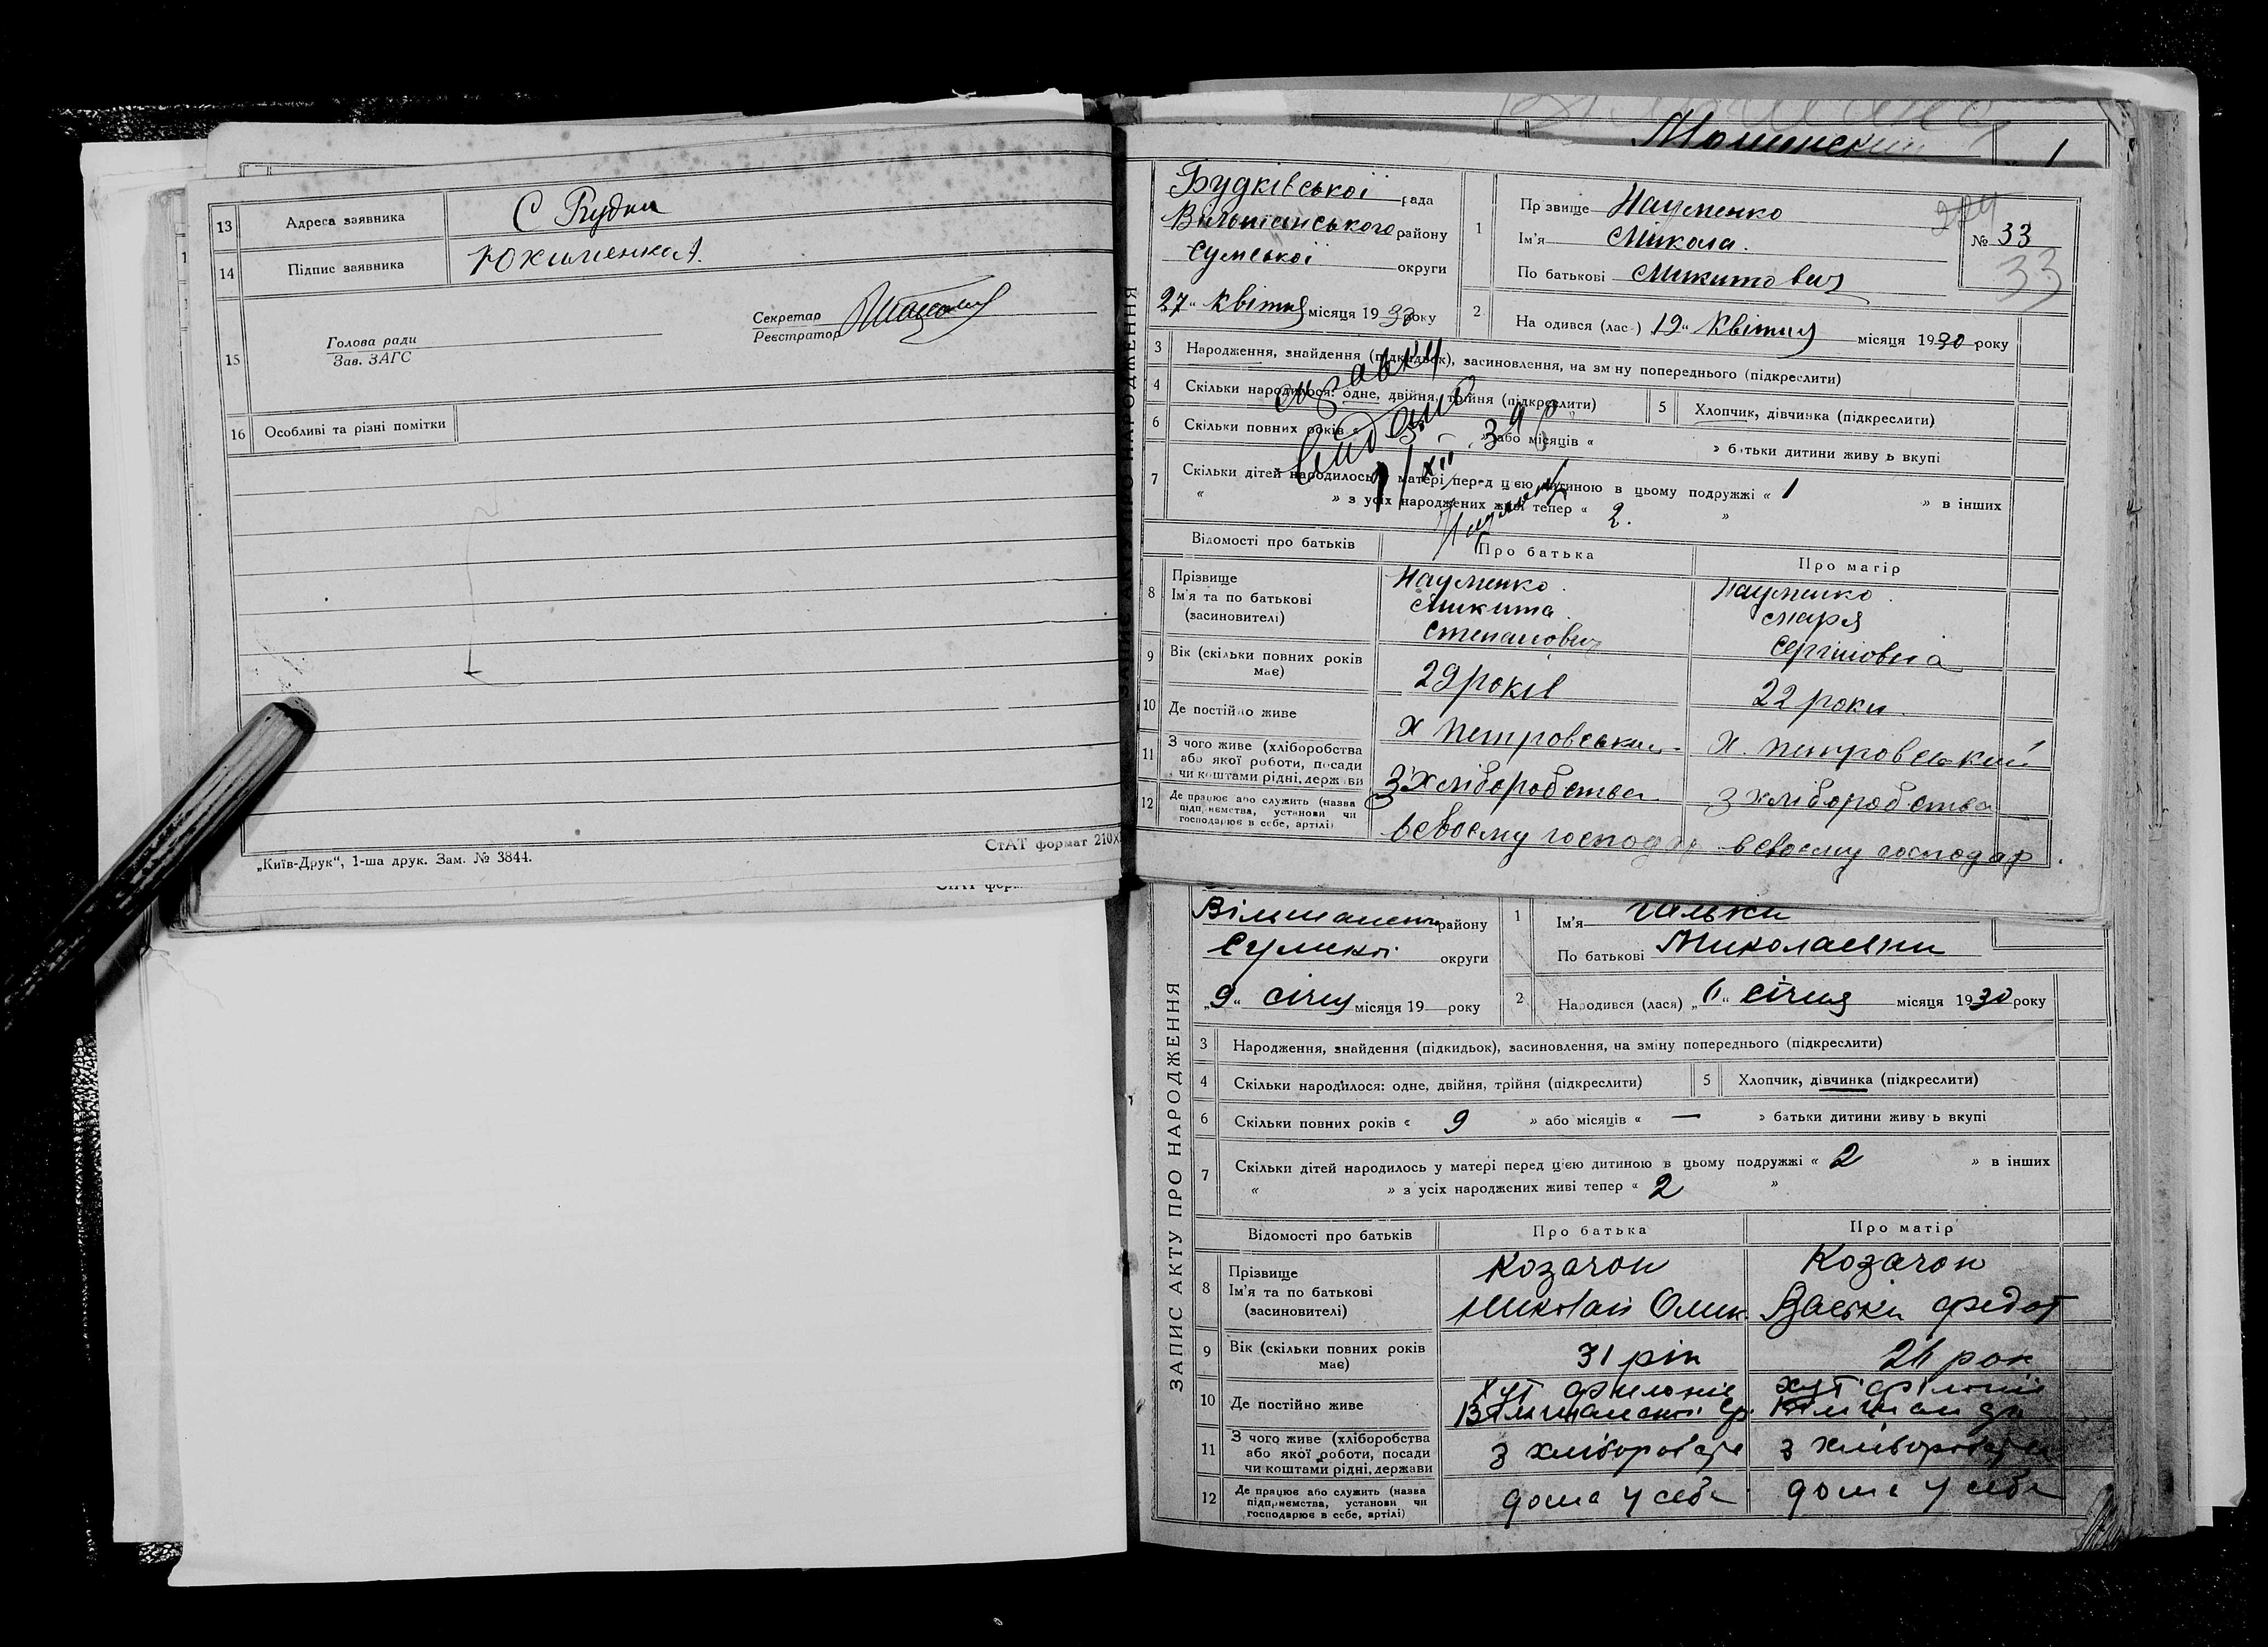 13 Адреса заявника С Рудки
14 Підпис заявника Юхименко А.
15 Голова ради
Зав. ЗАГС
Секретар
Реєстратор
16 Особливі та різні помітки
„Київ-Друк“, 1-ша друк. Зам. № 3844.
СтАТ формат 210Х
СтАТ форм
1
ЗАПИС АКТУ ПРО НАРОДЖЕННЯ
Будківської рада
Вильшанського району
Сумської округи
27 „ Квітня місяця 1930 року
1 Прізвище Науменко
Ім'я Микола.
По батькові Микитович
204
№ 33
33
2 На одився (лас-) 19 „ Квітня місяця 1930 року
3 Народження, знайдення (підкидьок), засиновлення, на зміну попереднього (підкреслити)
4 Скільки народилося: одне, двійня, трійня (підкреслити)
5 Хлопчик, дівчинка (підкреслити)
6 Скільки повних років « » або місяців « » батьки дитини живуть вкупі
7 Скільки дітей народилось у матері перед цією дитиною в цьому подружжі « 1 » в інших
« » з усіх народжених живі тепер « 2. »
справку
видано
1/XII. 39 р
Відомості про батьків Про батька Про матір
8 Прізвище
Ім'я та по батькові
(засиновителі)
Науменко
Микита
Степанович
Науменко
Марія
Сергіиовна
9 Вік (скільки повних років має) 29 років 22 роки.
10 Де постійно живе Х Петровський Х. Петровський
11 З чого живе (хліборобства
або якої роботи, посади
чи коштами рідні, держави
З хліборобства З хліборобства
12 Де працює або служить (назва
підприємства, установи чи
господарює в себе, артілі)
в своєму господар в своєму господар.
ЗАПИС АКТУ ПРО НАРОДЖЕННЯ
Вільшанськ району
Сумскої округи
„9 „ січня місяця 19 року
1 Ім'я Гальки
По батькові Миколаєвни
2 Народився (лася) „ 6 „ Січня місяця 1930 року
3 Народження, знайдення (підкидьок), засиновлення, на зміну попереднього (підкреслити)
4 Скільки народилося: одне, двійня, трійня (підкреслити)
5 Хлопчик, дівчинка (підкреслити)
6 Скільки повних років « 9 » або місяців « — » батьки дитини живуть вкупі
7 Скільки дітей народилось у матері перед цією дитиною в цьому подружжі « 2 » в інших
« » з усіх народжених живі тепер « 2 »
Відомості про батьків Про батька Про матір
8 Прізвище
Ім'я та по батькові
(засиновителі)
Козачок Козачок
Миколай Омик. Васьки Федот
9 Вік (скільки повних років має) 31 рік 26 рок
10 Де постійно живе
11 З чого живе (хліборобства
або якої роботи, посади
чи коштами рідні, держави
з хліборобств з хліборобств
12 Де працює або служить (назва
підприємства, установи чи
господарює в себе, артілі)
дома у себе дома у себе